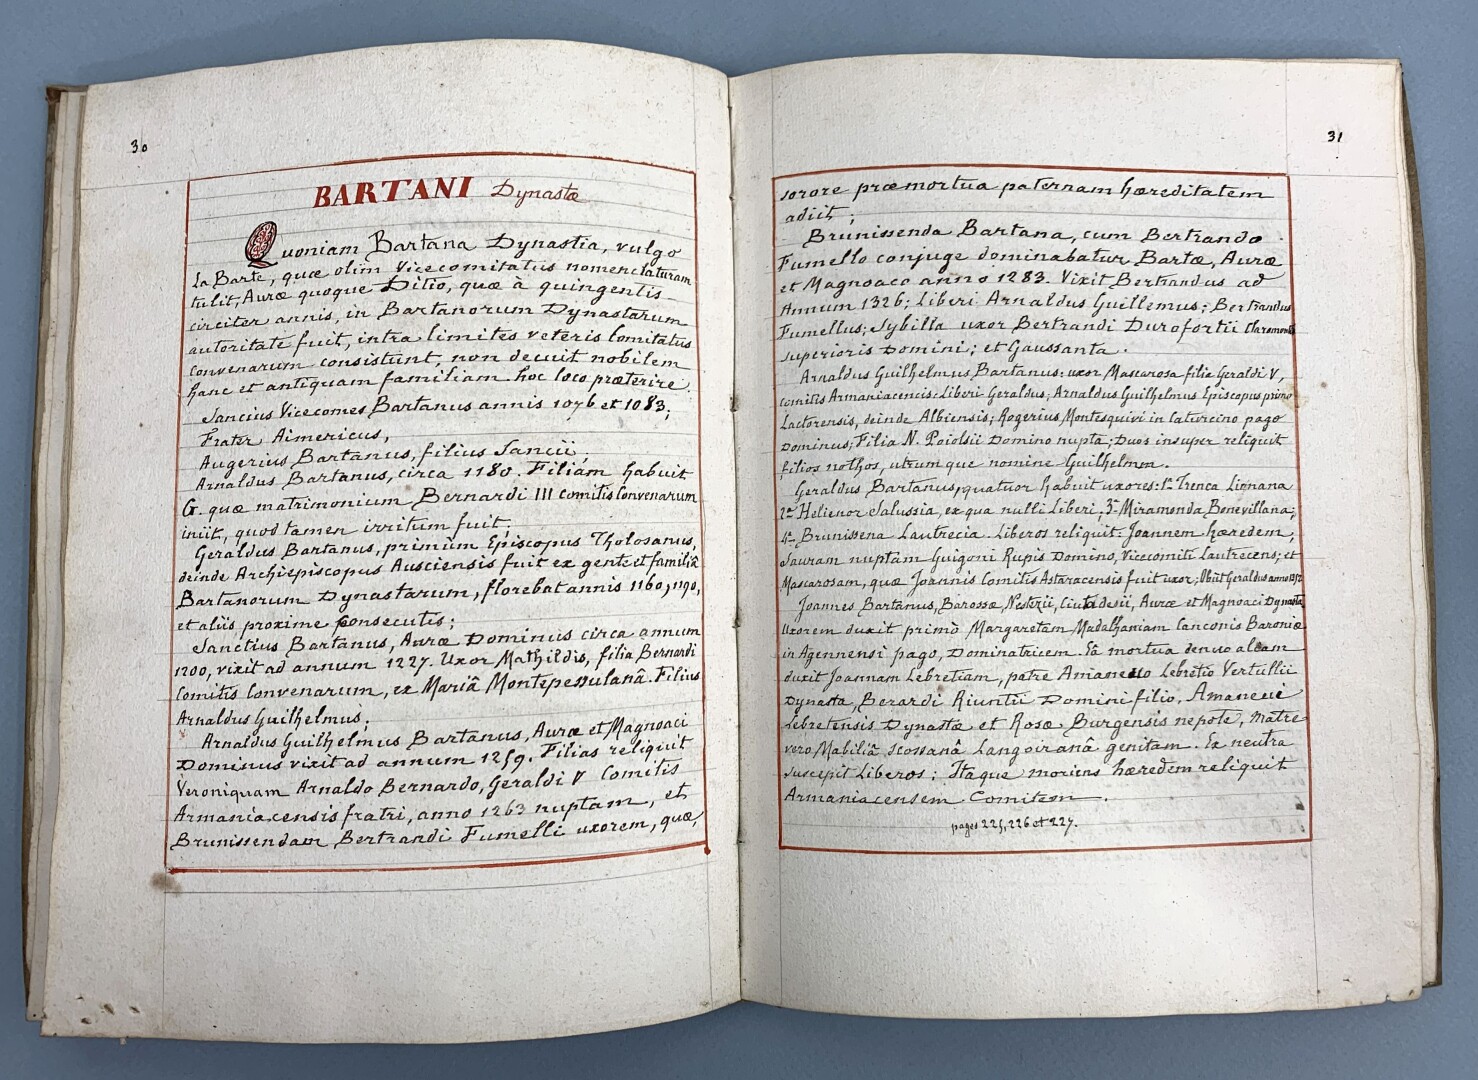 30
BARTANI Dynastæ
Quoniam Bartana Dynastia, vulgo
La Barte, quæ olim Vicecomitatus nomenclaturam
tulit, Auræ quoque Ditio, quæ à quingentis
circiter annis, in Bartanorum Dynastarum
autoritate fuit, intra limites veteris Comitatus
Convenarum consistunt, non decuit nobilem
hanc et antiquam familiam hoc loco præterire.
Sancius Vicecomes Bartanus annis 1076 et 1083;
Frater Aimericus,
Augerius Bartanus, filius Sancii;
Arnaldus Bartanus, circa 1180. Filiam habuit
G. quæ matrimonium Bernardi III comitis Convenarum
iniit, quod tamen irritum fuit;
Geraldus Bartanus, primùm Episcopus Tholosanus,
deinde Archiepiscopus Ausciensis fuit ex gente et familiâ
Bartanorum Dynastarum, florebat annis 1160, 1190,
et aliis proxime consecutis;
Sanctius Bartanus, Auræ Dominus circa annum
1200, vixit ad annum 1227. Uxor Mathildis, filia Bernardi
Comitis Convenarum, ex Mariâ Montepessulanâ. Filius
Arnaldus Guilhelmus;
Arnaldus Guilhelmus Bartanus, Auræ et Magnoaci
Dominus vixit ad annum 1259. Filias reliquit
Veroniquam Arnaldo Bernardo, Geraldi V Comitis
Armaniacensis fratri, anno 1263 nuptam, et
Brunissendam Bertrandi Fumelli uxorem, quæ,
31
sorore præmortua paternam hæreditatem
adiit;
Brunissenda Bartana, cum Bertrando
Fumello conjuge dominabatur Bartæ, Auræ
et Magnoaco anno 1283. Vixit Bertrandus ad
Annum 1326; Liberi Arnaldus Guillemus; Bertrandus
Fumellus; Sybilla uxor Bertrandi Durofortii Claromontis
superioris Domini; et Gaussanta.
Arnaldus Guilhelmus Bartanus: uxor Mascarosa filia Geraldi V,
comitis Armaniacencis: Liberi Geraldus; Arnaldus Guilhelmus Episcopus primo
Lactorensis, deinde Albiensis; Rogerius Montesquivi in Caturcino pago
Dominus; Filia N. Poiolsii Domino nupta; Duos insuper reliquit
filios nothos, utrumque nomine Guilhelmm.
Geraldus Bartanus, quatuor habuit uxores: 1ª Trenca Lignana
2ª Helienor Salussia, ex qua nulli Liberi; 3ª Miramonda Bonevillana;
4ª Brunissena Lautrecia. Liberos reliquit Joannem hæredem;
Sauram nuptam Guigoni Rupis Domino, Vicecomiti Lautrecens; et
Mascarosam, quæ Joannis Comitis Astaracensis fuit uxor; Obiit Geraldus anno
Joannes Bartanus, Barossæ, Nesterii, Ciutadesii, Auræ et Magnoaci Dynasta
Uxorem duxit primò Margaretam Madalhaniam Canconis Baroniæ
in Agennensi pago, Dominatricem. Eâ mortua denuo aliam
duxit Joannam Lebretiam, patre Amaneuo Lebretio Vertullii
Dynasta, Berardi Riuntii Domini filio, Amanevi
Lebretensis Dynastæ et Rosæ Burgensis nepote, matre
vero Mabiliâ Scossanâ Langoiranâ genitam. Ex neutra
suscepit Liberos; Itaque moriens hæredem reliquit
Armaniacensem Comitem.
pages 225, 226 et 227.